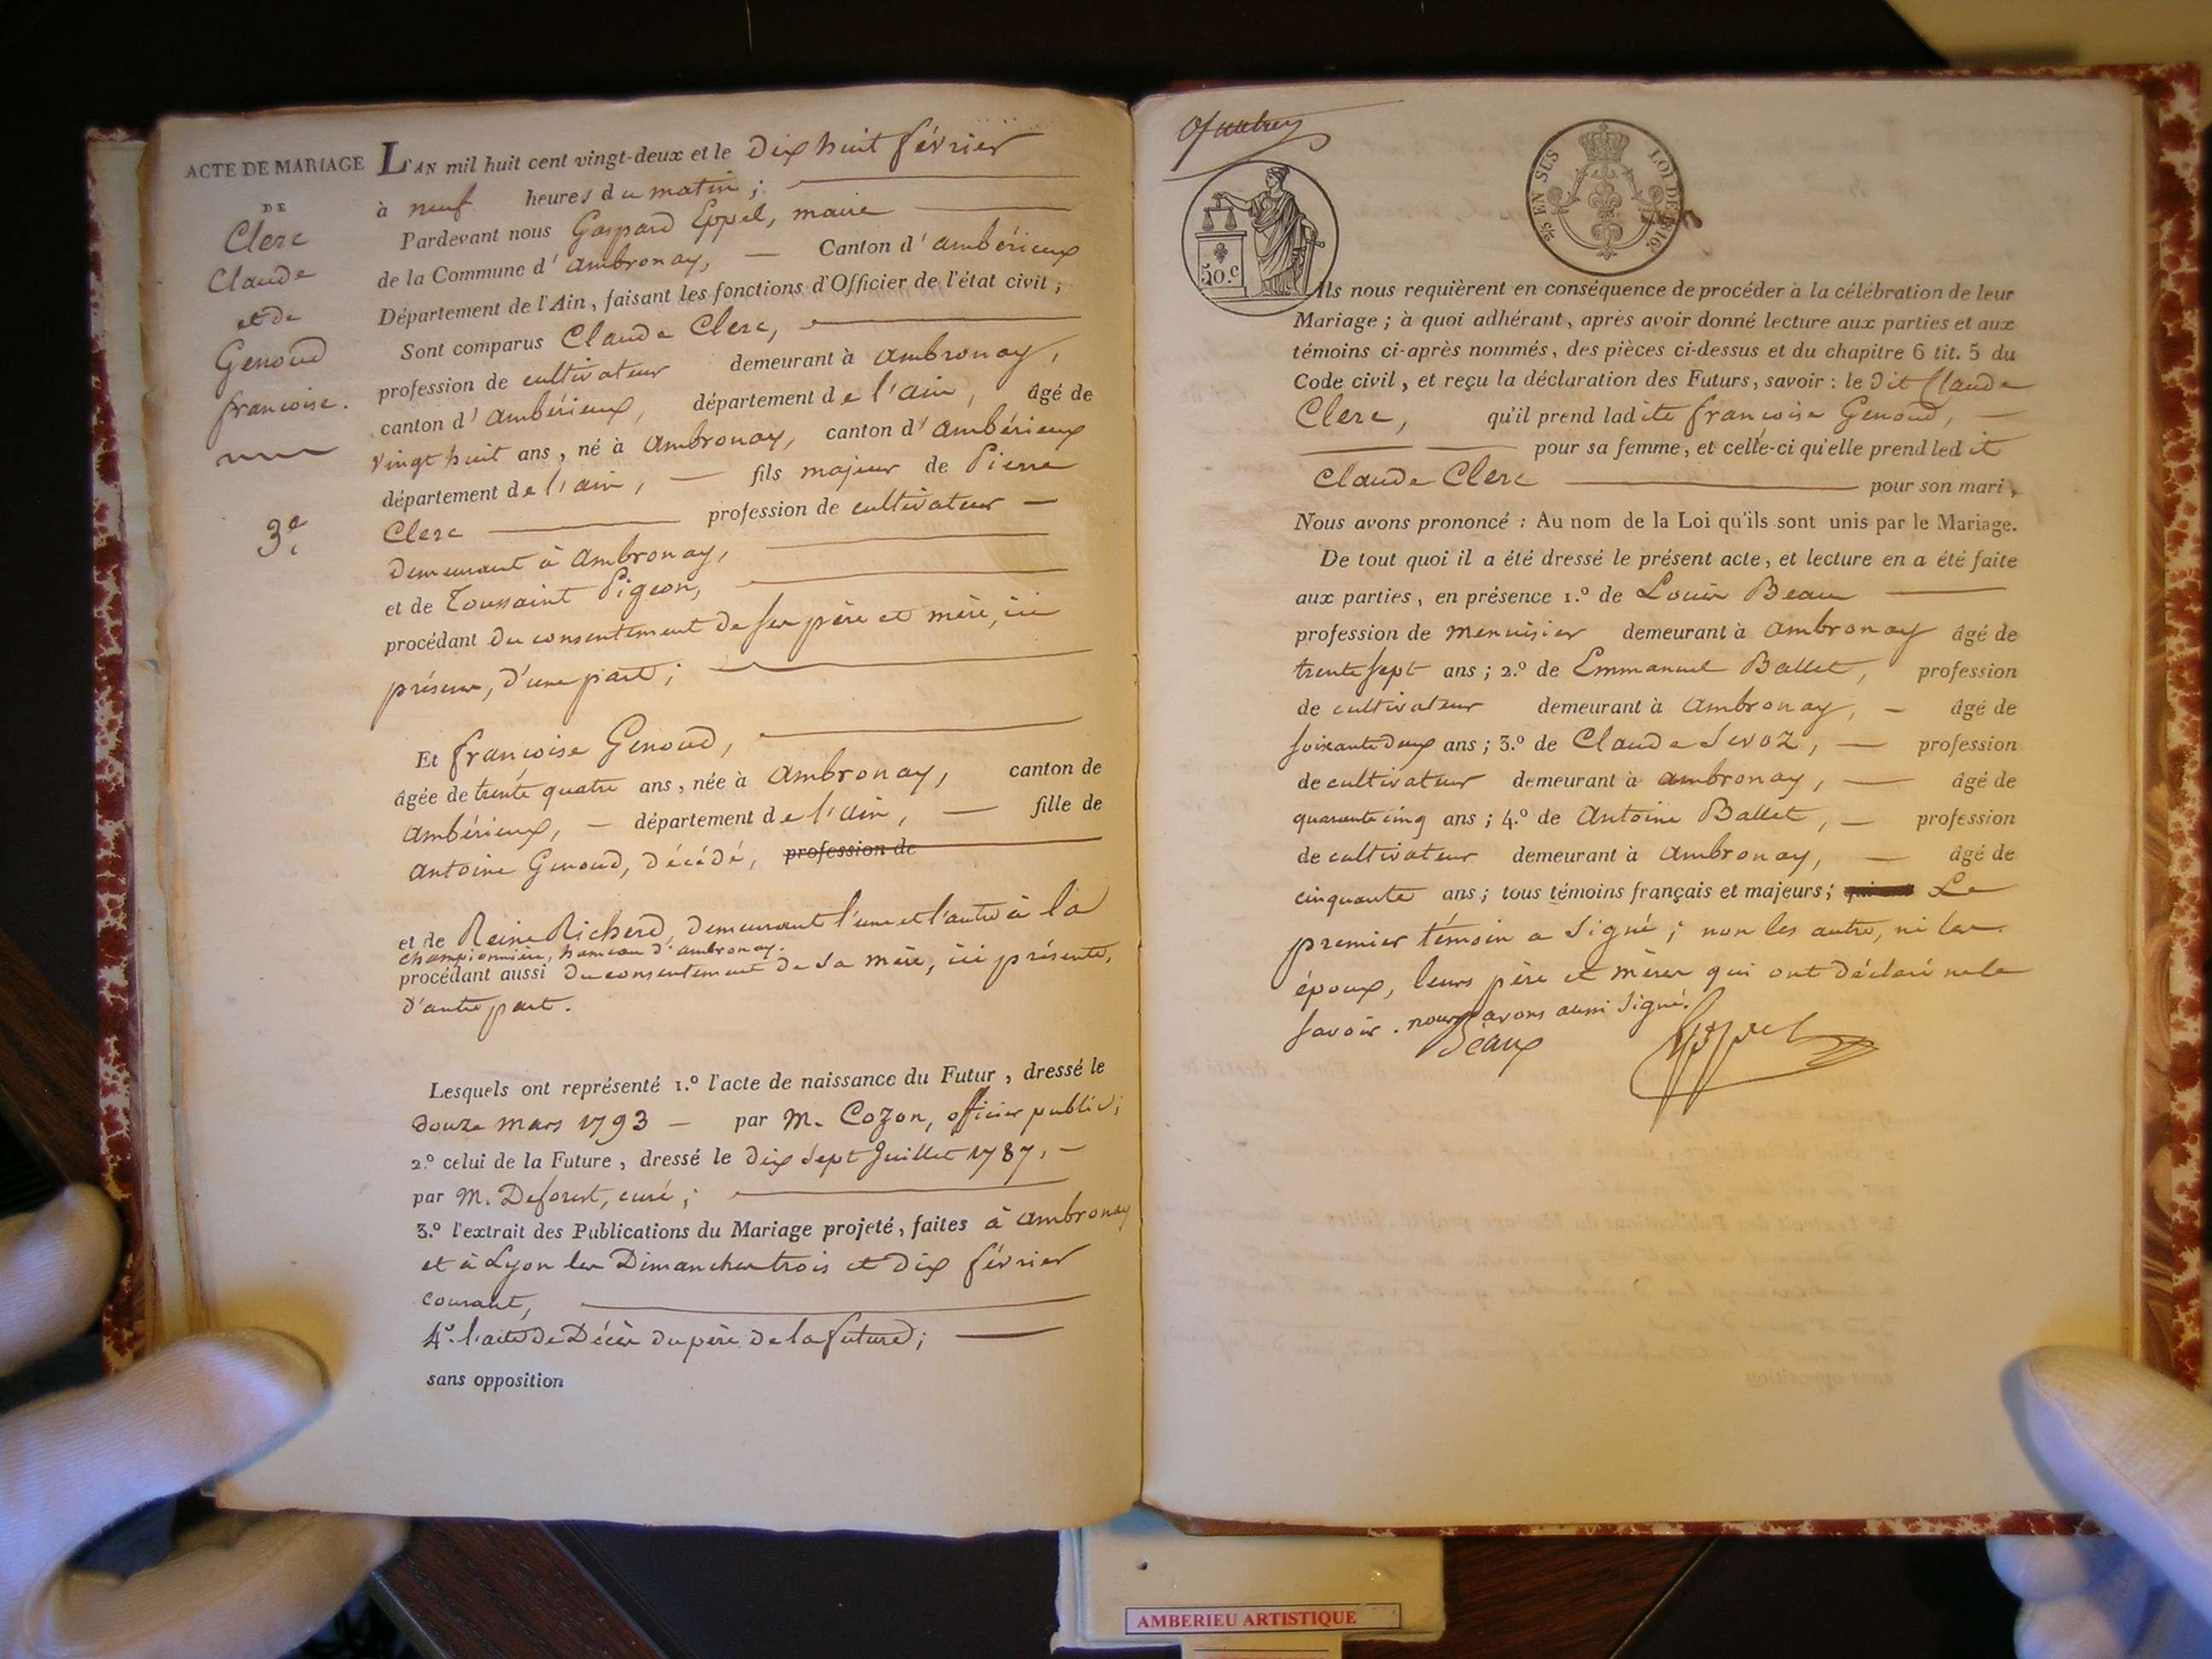 ACTE DE MARIAGE
DE
Clerc
Claude
et de
Genoud
françoise.
3e
L'AN mil huit cent vingt-deux et le dix huit février
à neuf heures du matin ;
Pardevant nous Gaspard Eppel, maire
de la Commune d'ambronay, Canton d'ambérieux
Département de l'Ain, faisant les fonctions d'Officier de l'état civil ;
Sont comparus Claude Clerc,
profession de cultivateur demeurant à ambronay,
canton d'ambérieux, département de l'ain, âgé de
vingt huit ans, né à ambronay, canton d'ambérieux
département de l'ain, fils majeur de Pierre
Clerc profession de cultivateur
demeurant à ambronay,
et de Toussaint Pigeon,
procédant du consentement de ses père et mère, ici
présens, d'une part ;
Et françoise Genoud,
âgée de trente quatre ans, née à ambronay, canton de
ambérieux, département de l'ain, fille de
antoine Genoud, décédé, profession de
et de Reine Richerd, demeurant l'une et l'autre à la
championnière, hameau d'ambronay.
procédant aussi du consentement de sa mère, ici présente,
d'autre part.
Lesquels ont représenté 1.º l'acte de naissance du Futur, dressé le
douze mars 1793 par M. Cozon, officier public ;
2.º celui de la Future, dressé le dix sept Juillet 1787,
par M. Deforest, curé ;
3.º l'extrait des Publications du Mariage projeté, faites à ambronay
et à Lyon les Dimanches trois et dix février
courant,
4.º l'acte de Décès du père de la future ;
sans opposition
50.c
EN SUS
LOI DE 1816.
Ils nous requièrent en conséquence de procéder à la célébration de leur
Mariage ; à quoi adhérant, après avoir donné lecture aux parties et aux
témoins ci-après nommés, des pièces ci-dessus et du chapitre 6 tit. 5 du
Code civil, et reçu la déclaration des Futurs, savoir : le dit Claude
Clerc, qu'il prend ladite francoise Genoud,
pour sa femme, et celle-ci qu'elle prend ledit
Claude Clerc pour son mari,
Nous avons prononcé : Au nom de la Loi qu'ils sont unis par le Mariage.
De tout quoi il a été dressé le présent acte, et lecture en a été faite
aux parties, en présence 1.º de Louis Beau
profession de menuisier demeurant à ambronay âgé de
trente sept ans ; 2.º de Emmanuel Ballet, profession
de cultivateur demeurant à ambronay, âgé de
soixante deux ans ; 3.º de Claude Servoz, profession
de cultivateur demeurant à ambronay, âgé de
quarante cinq ans ; 4.º de Antoine Ballet, profession
de cultivateur demeurant à ambronay, âgé de
cinquante ans ; tous témoins français et majeurs ; Le
premier témoin a signé ; non les autres, ni les
époux, leurs père et mères qui ont déclaré ne le
savoir. nous avons aussi signé.
Beaux
Eppel
AMBERIEU ARTISTIQUE